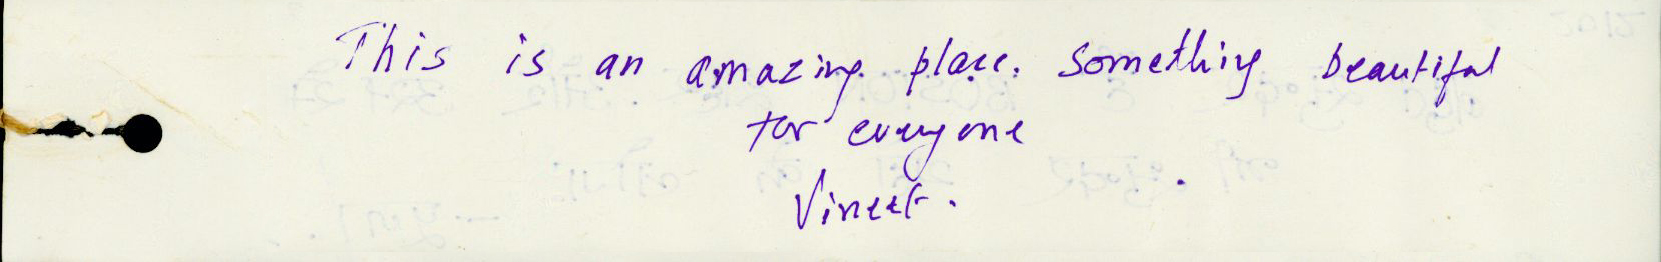 This is an amazing place. Something beautiful
for everyone
Vineet.